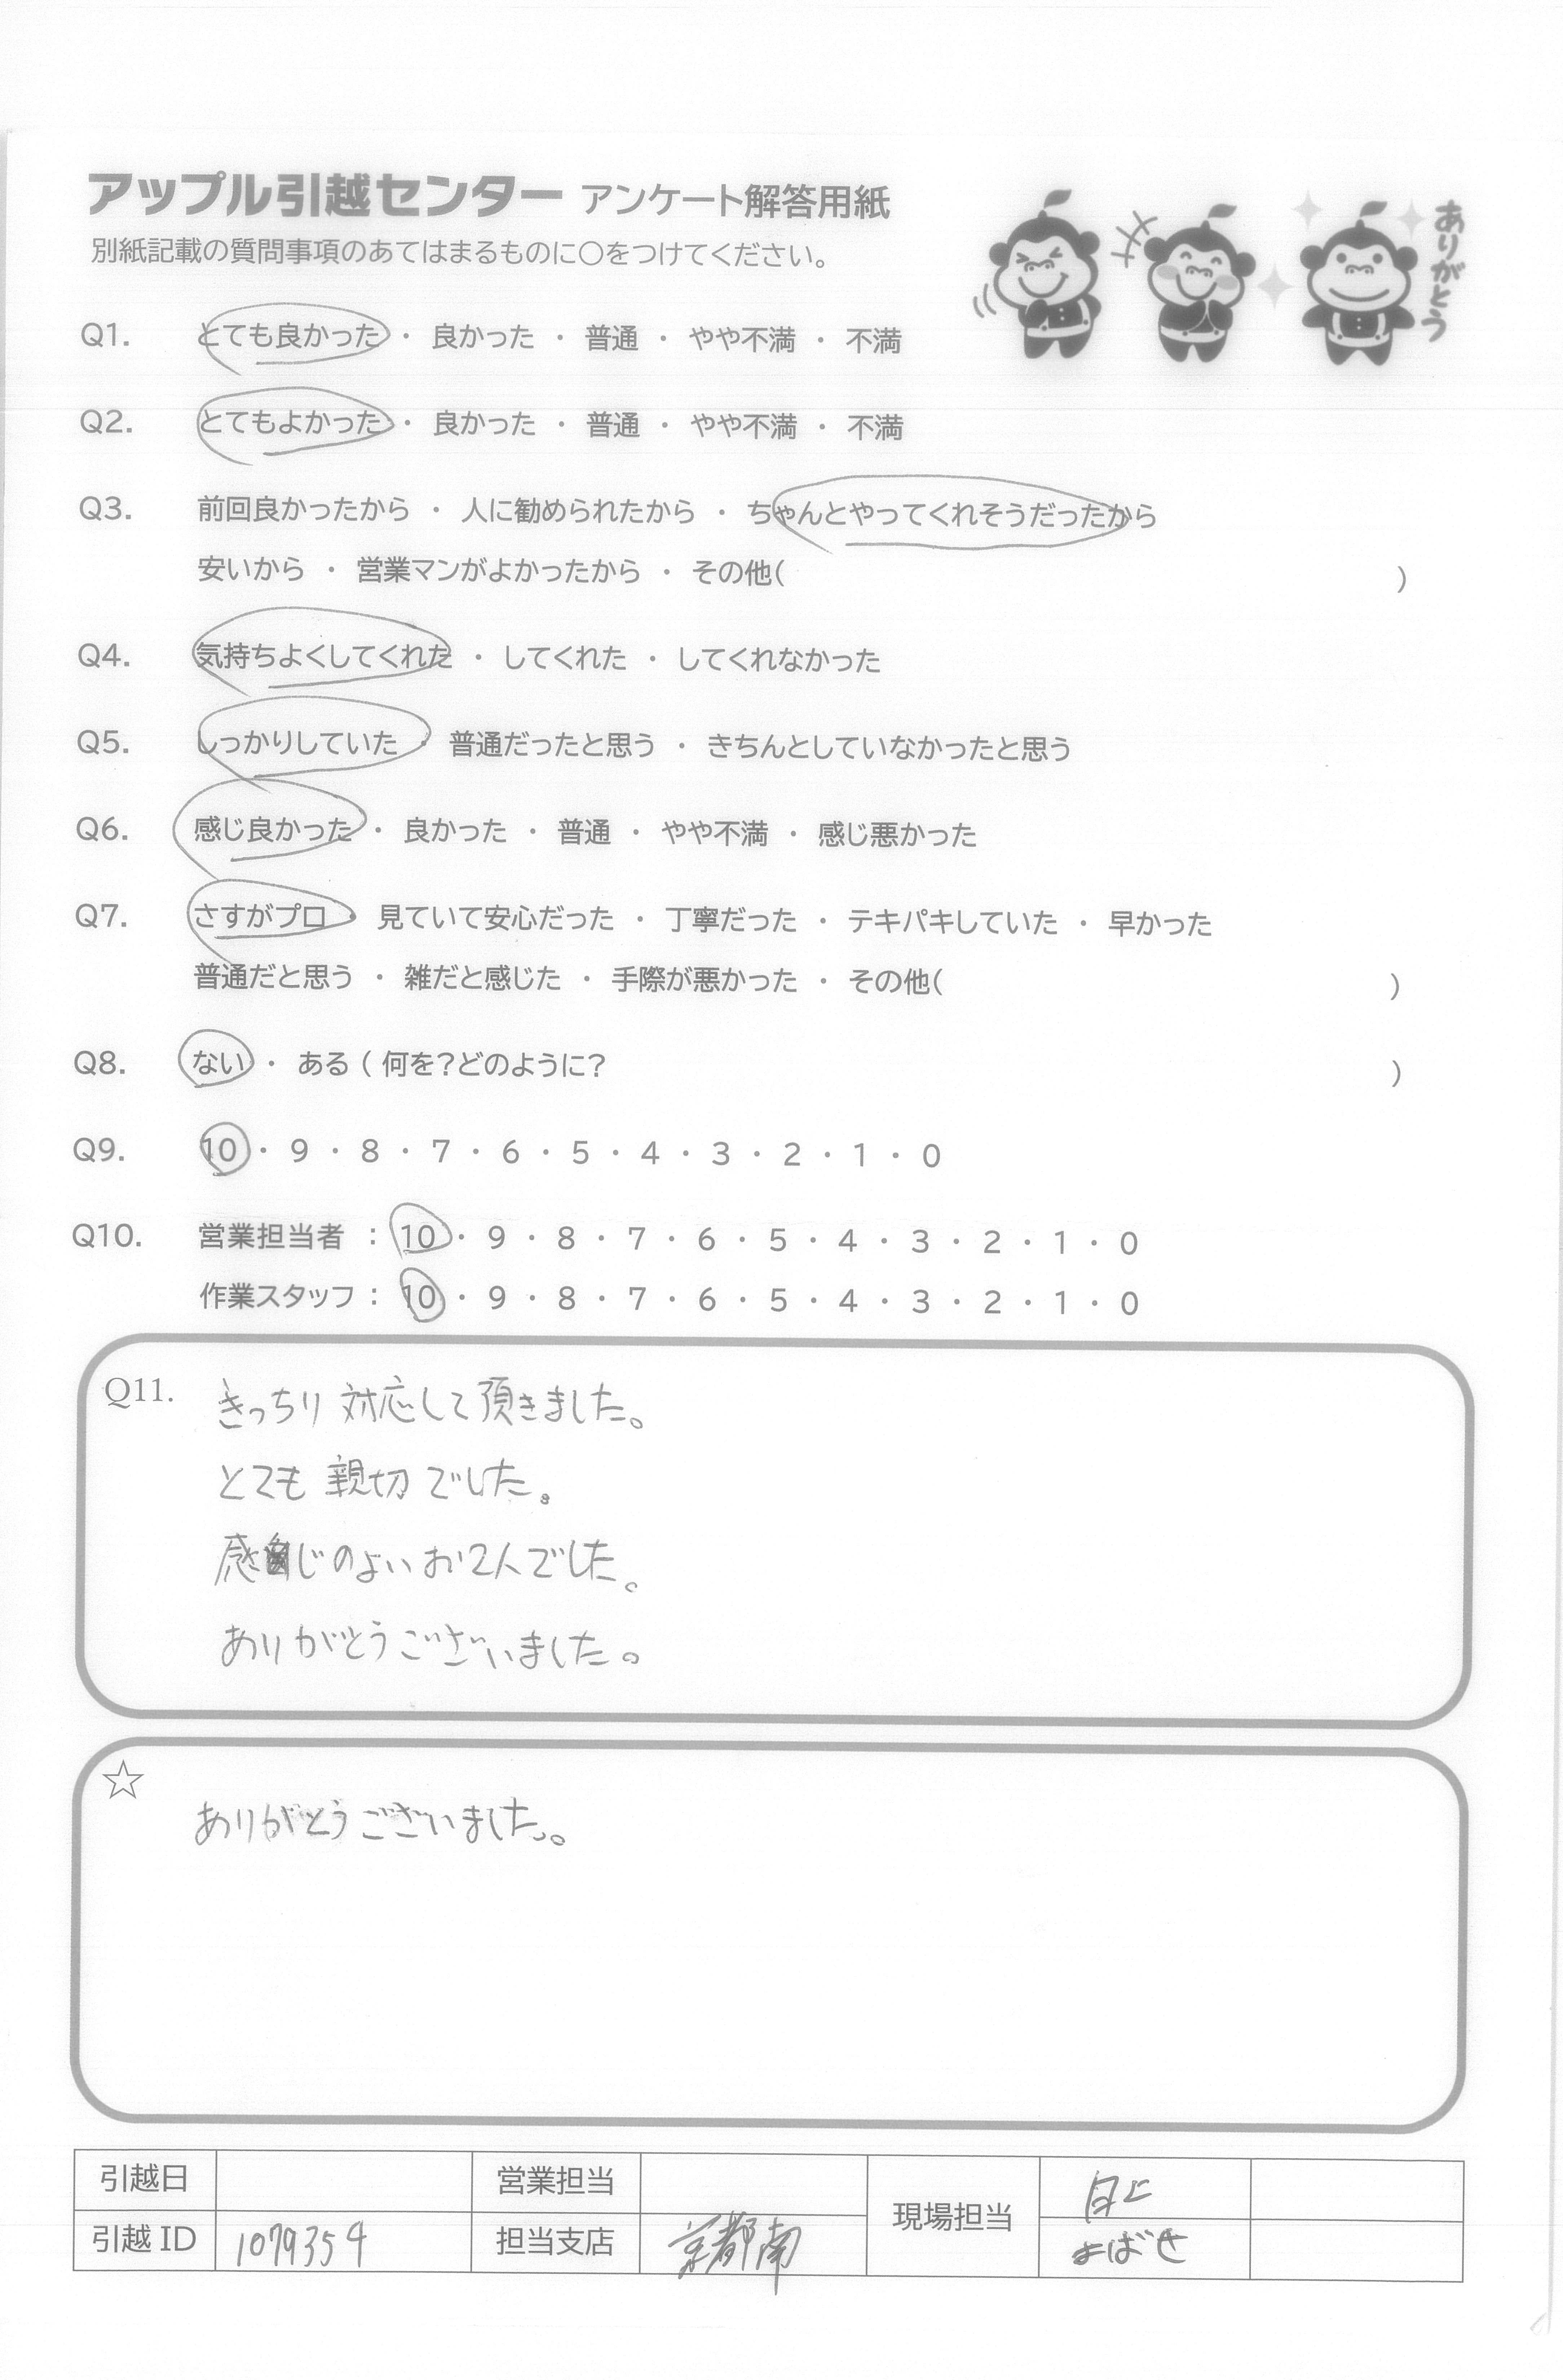 アップル引越センター アンケート解答用紙
別紙記載の質問事項のあてはまるものに○をつけてください。
ありがとう
Q1. とても良かった ・ 良かった ・ 普通 ・ やや不満 ・ 不満
Q2. とてもよかった ・ 良かった ・ 普通 ・ やや不満 ・ 不満
Q3. 前回良かったから ・ 人に勧められたから ・ ちゃんとやってくれそうだったから
安いから ・ 営業マンがよかったから ・ その他( )
Q4. 気持ちよくしてくれた ・ してくれた ・ してくれなかった
Q5. しっかりしていた ・ 普通だったと思う ・ きちんとしていなかったと思う
Q6. 感じ良かった ・ 良かった ・ 普通 ・ やや不満 ・ 感じ悪かった
Q7. さすがプロ ・ 見ていて安心だった ・ 丁寧だった ・ テキパキしていた ・ 早かった
普通だと思う ・ 雑だと感じた ・ 手際が悪かった ・ その他( )
Q8. ない ・ ある ( 何を?どのように? )
Q9. 10 ・ 9 ・ 8 ・ 7 ・ 6 ・ 5 ・ 4 ・ 3 ・ 2 ・ 1 ・ 0
Q10. 営業担当者 : 10 ・ 9 ・ 8 ・ 7 ・ 6 ・ 5 ・ 4 ・ 3 ・ 2 ・ 1 ・ 0
作業スタッフ : 10 ・ 9 ・ 8 ・ 7 ・ 6 ・ 5 ・ 4 ・ 3 ・ 2 ・ 1 ・ 0
Q11. きっちり対応して頂きました。
とても親切でした。
感じのよいお2人でした。
ありがとうございました。
☆
ありがとうございました。
引越日 営業担当 現場担当
引越ID 1079354 担当支店 京都南